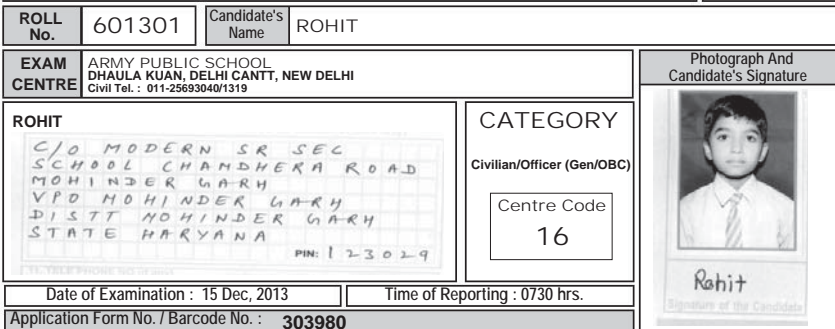 ROLL No. 601301 Candidate's Name ROHIT
EXAM CENTRE ARMY PUBLIC SCHOOL
DHAULA KUAN, DELHI CANTT, NEW DELHI
Civil Tel. : 011-25693040/1319
Photograph And
Candidate's Signature
ROHIT
C/O MODERN SR SEC
SCHOOL CHAMDHERA ROAD
MOHINDER GARH
VPO MOHINDER GARH
DISTT MOHINDER GARH
STATE HARYANA
PIN: 123029
CATEGORY
Civilian/Officer (Gen/OBC)
Centre Code
16
Rohit
Signature of the Candidate
Date of Examination : 15 Dec, 2013 Time of Reporting : 0730 hrs.
Application Form No. / Barcode No. : 303980